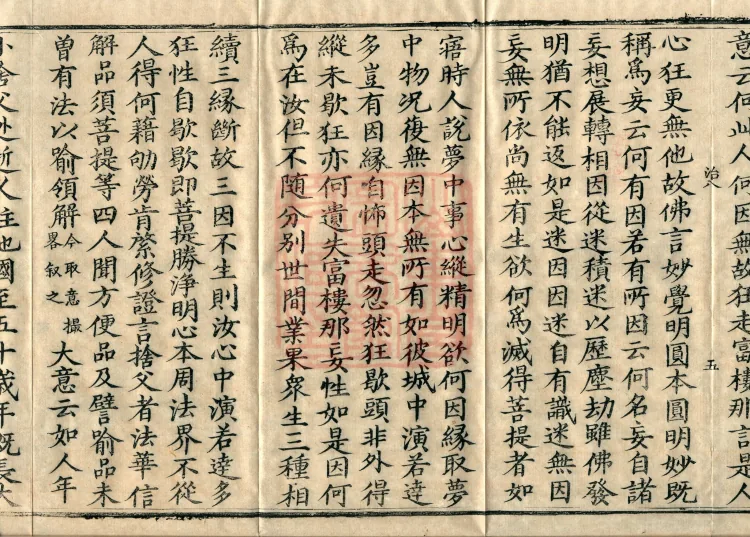 意云何此人何因無故狂走富樓那言是人
治八 五
心狂更無他故佛言妙覺明圓本圓明妙既
稱爲妄云何有因若有所因云何名妄自諸
妄想展轉相因從迷積迷以歷塵劫雖佛發
明猶不能返如是迷因因迷自有識迷無因
妄無所依尚無有生欲何爲滅得菩提者如
寤時人說夢中事心縱精明欲何因緣取夢
中物况復無因本無所有如彼城中演若達
多豈有因緣自怖頭走忽然狂歇頭非外得
縱未歇狂亦何遺失富樓那妄性如是因何
爲在汝但不隨分別世間業果衆生三種相
續三緣斷故三因不生則汝心中演若達多
狂性自歇歇即菩提勝淨明心本周法界不從
人得何藉劬勞肯綮修證言捨父者法華信
解品須菩提等四人聞方便品及譬喻品未
曾有法以喻領解今取意撮畧叙之大意云如人年
小捨父逃逝久住他國至五十歲年既長大